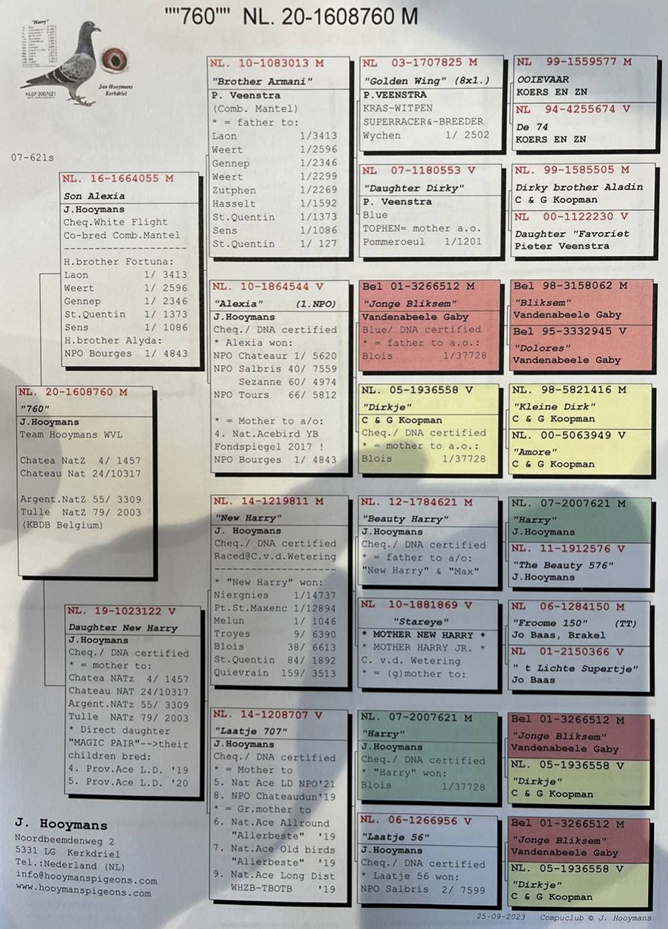 ""760"" NL. 20-1608760 M
"Harry"
NL07-2007621
Jan Hooymans
Kerkdriel
07-621s
NL. 20-1608760 M
"760"
J.Hooymans
Team Hooymans WVL
Chatea NatZ 4/ 1457
Chateau Nat 24/10317
Argent.NatZ 55/ 3309
Tulle NatZ 79/ 2003
(KBDB Belgium)
NL. 16-1664055 M
Son Alexia
J.Hooymans
Cheq.White Flight
Co-bred Comb.Mantel
H.brother Fortuna:
Laon 1/ 3413
Weert 1/ 2596
Gennep 1/ 2346
St.Quentin 1/ 1373
Sens 1/ 1086
H.brother Alyda:
NPO Bourges 1/ 4843
NL. 19-1023122 V
Daughter New Harry
J.Hooymans
Cheq./ DNA certified
* = mother to:
Chatea NATz 4/ 1457
Chateau NAT 24/10317
Argent.NATz 55/ 3309
Tulle NATz 79/ 2003
* Direct daughter
"MAGIC PAIR"-->their
children bred:
4. Prov.Ace L.D. '19
5. Prov.Ace L.D. '20
NL. 10-1083013 M
"Brother Armani"
P. Veenstra
(Comb. Mantel)
* = father to:
Laon 1/3413
Weert 1/2596
Gennep 1/2346
Weert 1/2299
Zutphen 1/2269
Hasselt 1/1592
St.Quentin 1/1373
Sens 1/1086
St.Quentin 1/ 127
NL. 10-1864544 V
"Alexia" (1.NPO)
J.Hooymans
Cheq./ DNA certified
* Alexia won:
NPO Chateaur 1/ 5620
NPO Salbris 40/ 7559
Sezanne 60/ 4974
NPO Tours 66/ 5812
* = Mother to a/o:
4. Nat.Acebird YB
Fondspiegel 2017 !
NPO Bourges 1/ 4843
NL. 14-1219811 M
"New Harry"
J. Hooymans
Cheq./ DNA certified
Raced@C.v.d.Wetering
* "New Harry" won:
Niergnies 1/14737
Pt.St.Maxenc 1/12894
Melun 1/ 1046
Troyes 9/ 6390
Blois 38/ 6613
St.Quentin 84/ 1892
Quievrain 159/ 3513
NL. 14-1208707 V
"Laatje 707"
J.Hooymans
Cheq./ DNA certified
* = Mother to
5. Nat Ace LD NPO'21
8. NPO Chateaudun'19
* = Gr.mother to
6. Nat.Ace Allround
"Allerbeste" '19
7. Nat.Ace Old birds
"Allerbeste" '19
9. Nat.Ace Long Dist
WHZB-TBOTB '19
NL 03-1707825 M
"Golden Wing" (8x1.)
P.VEENSTRA
KRAS-WITPEN
SUPERRACER&-BREEDER
Wychen 1/ 2502
NL 07-1180553 V
"Daughter Dirky"
P. Veenstra
Blue
TOPHEN= mother a.o.
Pommeroeul 1/1201
Bel 01-3266512 M
"Jonge Bliksem"
Vandenabeele Gaby
Blue/ DNA certified
* = father to a.o.:
Blois 1/37728
NL. 05-1936558 V
"Dirkje"
C & G Koopman
Cheq./ DNA certified
* = mother to a.o.:
Blois 1/37728
NL. 12-1784621 M
"Beauty Harry"
J.Hooymans
Cheq./ DNA certified
* = father to a/o:
"New Harry" & "Max"
NL 10-1881869 V
"Stareye"
* MOTHER NEW HARRY *
* MOTHER HARRY JR. *
C. v.d. Wetering
* = (g)mother to:
NL. 07-2007621 M
"Harry"
J.Hooymans
Cheq./ DNA certified
* "Harry" won:
Blois 1/37728
NL. 06-1266956 V
"Laatje 56"
J.Hooymans
Cheq./ DNA certified
* Laatje 56 won:
NPO Salbris 2/ 7599
NL 99-1559577 M
OOIEVAAR
KOERS EN ZN
NL 94-4255674 V
De 74
KOERS EN ZN
NL. 99-1585505 M
Dirky brother Aladin
C & G Koopman
NL 00-1122230 V
Daughter "Favoriet
Pieter Veenstra
Bel 98-3158062 M
"Bliksem"
Vandenabeele Gaby
Bel 95-3332945 V
"Dolores"
Vandenabeele Gaby
NL. 98-5821416 M
"Kleine Dirk"
C & G Koopman
NL. 00-5063949 V
"Amore"
C & G Koopman
NL. 07-2007621 M
"Harry"
J.Hooymans
NL. 11-1912576 V
"The Beauty 576"
J.Hooymans
NL 06-1284150 M
"Froome 150" (TT)
Jo Baas, Brakel
NL 01-2150366 V
" t Lichte Supertje"
Jo Baas
Bel 01-3266512 M
"Jonge Bliksem"
Vandenabeele Gaby
NL. 05-1936558 V
"Dirkje"
C & G Koopman
Bel 01-3266512 M
"Jonge Bliksem"
Vandenabeele Gaby
NL. 05-1936558 V
"Dirkje"
C & G Koopman
J. Hooymans
Noordbeemdenweg 2
5331 LG Kerkdriel
Tel.:Nederland (NL)
info@hooymanspigeons.com
www.hooymanspigeons.com
25-09-2023 Compuclub © J. Hooymans